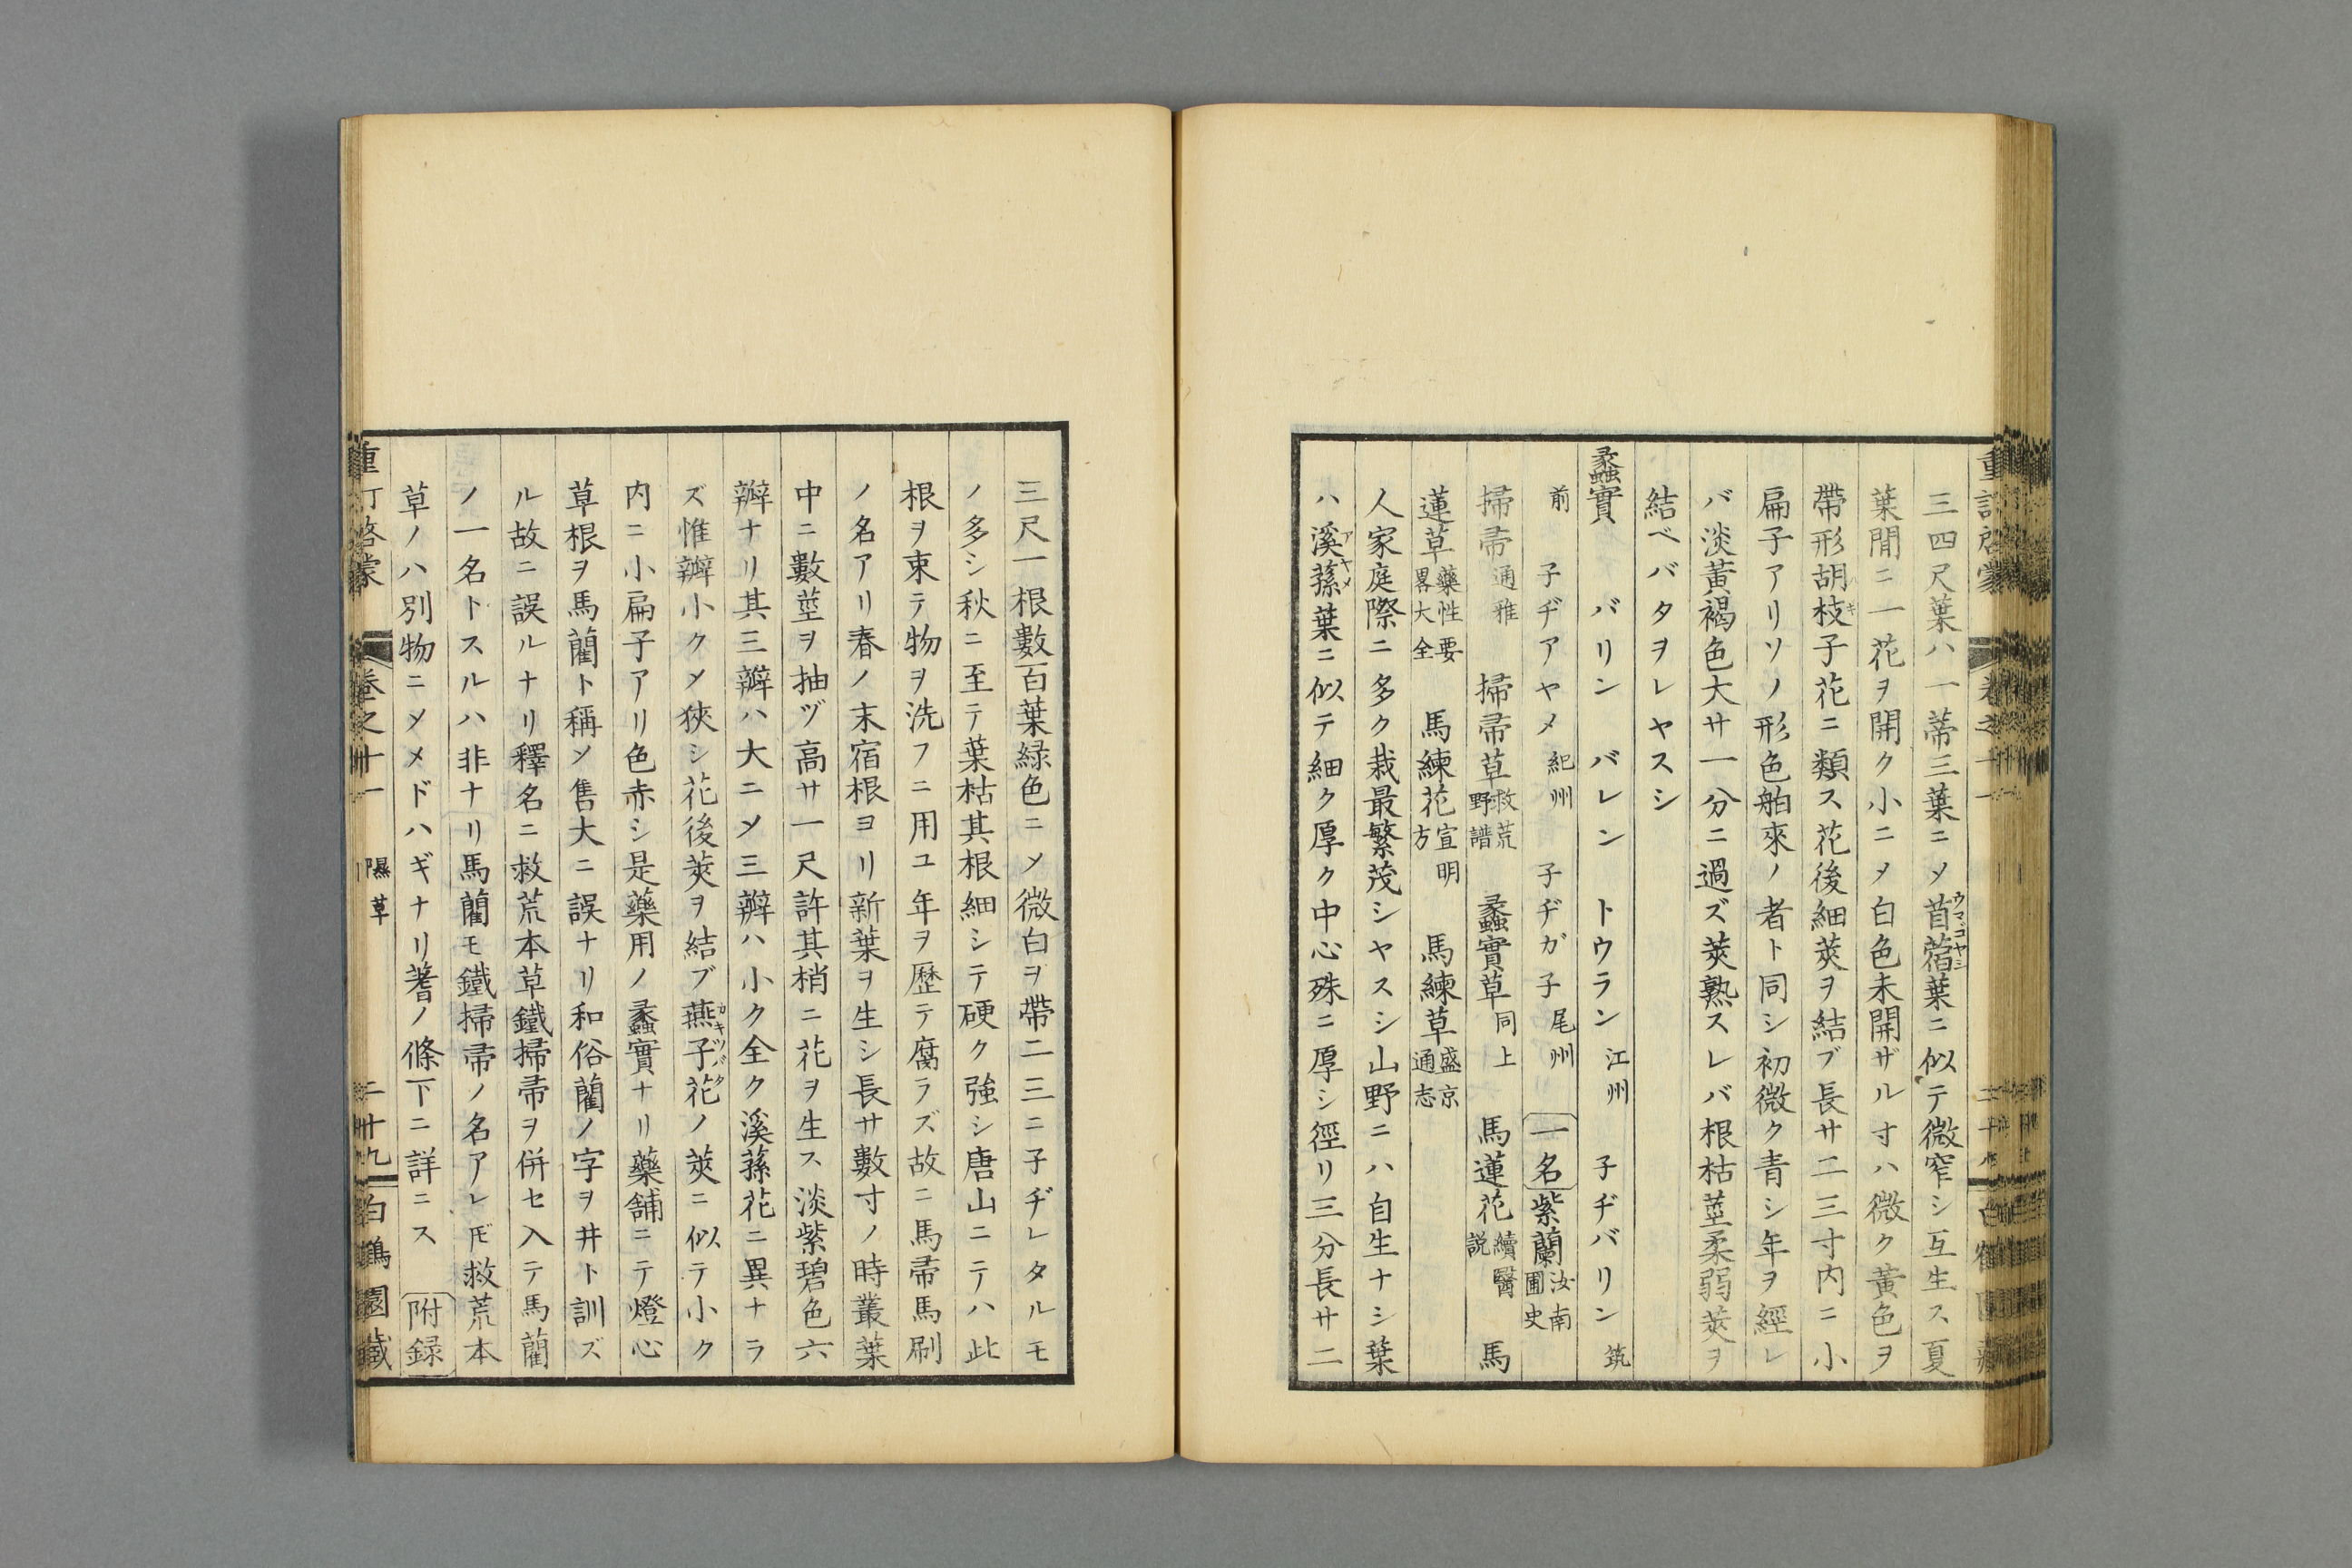 三四尺葉ハ一蒂三葉ニㄨ苜蓿葉ニ似テ微窄シ互生ス夏
ウマゴヤシ
葉間ニ一花ヲ開ク小ニㄨ白色未開ザル寸ハ微ク黄色ヲ
帶形胡枝子花ニ類ス花後細莢ヲ結ブ長サ二三寸内ニ小
扁子アリソノ形色舶來ノ者ト同シ初微ク青シ年ヲ經レ
バ淡黄褐色大サ一分ニ過ズ莢熟スレバ根枯莖柔弱莢ヲ
結ベバタヲレヤスシ
蠡實 バリン バレン トウラン 江州 子ヂバリン 筑
前 子ヂアヤメ 紀州 子ヂガ子 尾州 一名 紫蘭 汝南圃史
掃帚 通雅 掃帚草 救荒野譜 蠡實草 同上 馬蓮花 續醫説 馬
蓮草 藥性要畧大全 馬練花 宣明方 馬練草 盛京通志
人家庭際ニ多ク栽最繁茂シヤスシ山野ニハ自生ナシ葉
ハ溪蓀葉ニ似テ細ク厚ク中心殊ニ厚シ徑リ三分長サ二
アヤメ
三尺一根數百葉緑色ニㄨ微白ヲ帶二三ニ子ヂレタルモ
ノ多シ秋ニ至テ葉枯其根細シテ硬ク強シ唐山ニテハ此
根ヲ束テ物ヲ洗フニ用ユ年ヲ歴テ腐ラズ故ニ馬帚馬刷
ノ名アリ春ノ末宿根ヨリ新葉ヲ生シ長サ數寸ノ時叢葉
中ニ數莖ヲ抽ヅ高サ一尺許其梢ニ花ヲ生ス淡紫碧色六
瓣ナリ其三瓣ハ大ニㄨ三瓣ハ小ク全ク溪蓀花ニ異ナラ
ズ惟瓣小クㄨ狹シ花後莢ヲ結ブ燕子花ノ莢ニ似テ小ク
カキツバタ
内ニ小扁子アリ色赤シ是藥用ノ蠡實ナリ藥舖ニテ燈心
草根ヲ馬藺ト稱ㄨ售大ニ誤ナリ和俗藺ノ字ヲ井ト訓ズ
ル故ニ誤ルナリ釋名ニ救荒本草鐵掃帚ヲ併セ入テ馬藺
ノ一名トスルハ非ナリ馬藺モ鐵掃帚ノ名アレ𪜈救荒本
草ノハ別物ニㄨメドハギナリ蓍ノ條下ニ詳ニス 附録
重訂啓蒙 卷之十一 隰草 二十九 白鶴園藏